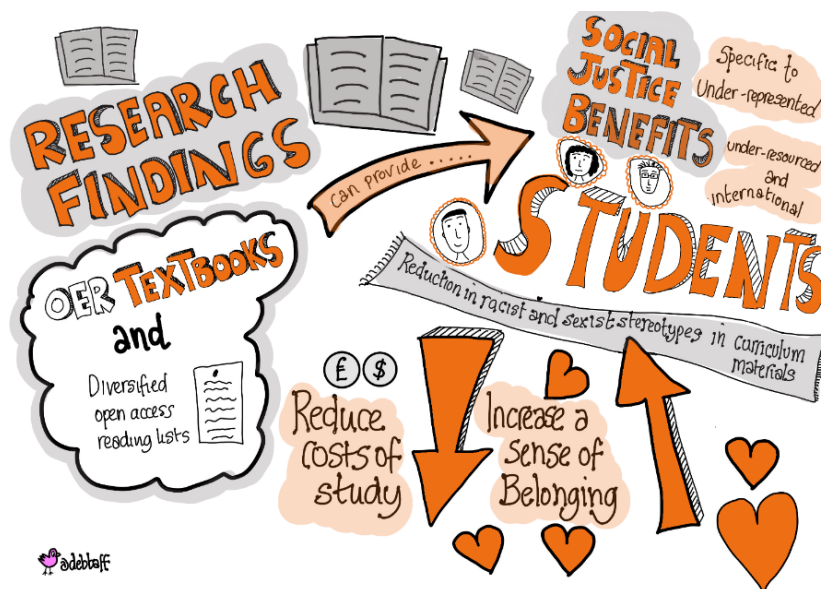 RESEARCH
FINDINGS
OER TEXTBOOKS
and
Diversified
open access
reading lists
can provide .....
SOCIAL
JUSTICE
BENEFITS
Specific to
Under-represented
under-resourced
and
international
STUDENTS
Reduction in racist and sexist stereotypes in curriculum
materials
£ $
Reduce
costs of
study
Increase a
sense of
Belonging
@debbaff